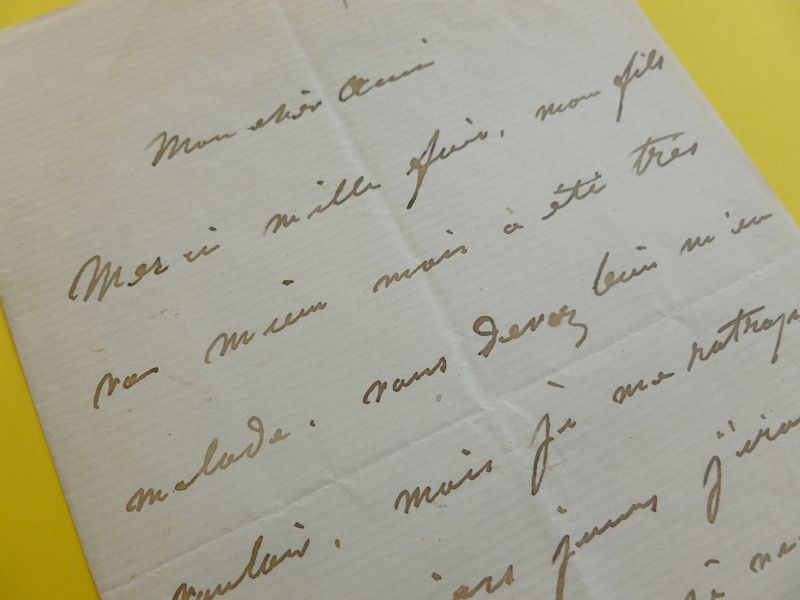 Mon cher Ami
Merci mille fois, mon fils
va mieux mais a été tres
malade. vous devez bien m'en
vouloir. mais je me ratrap
jours j'irai